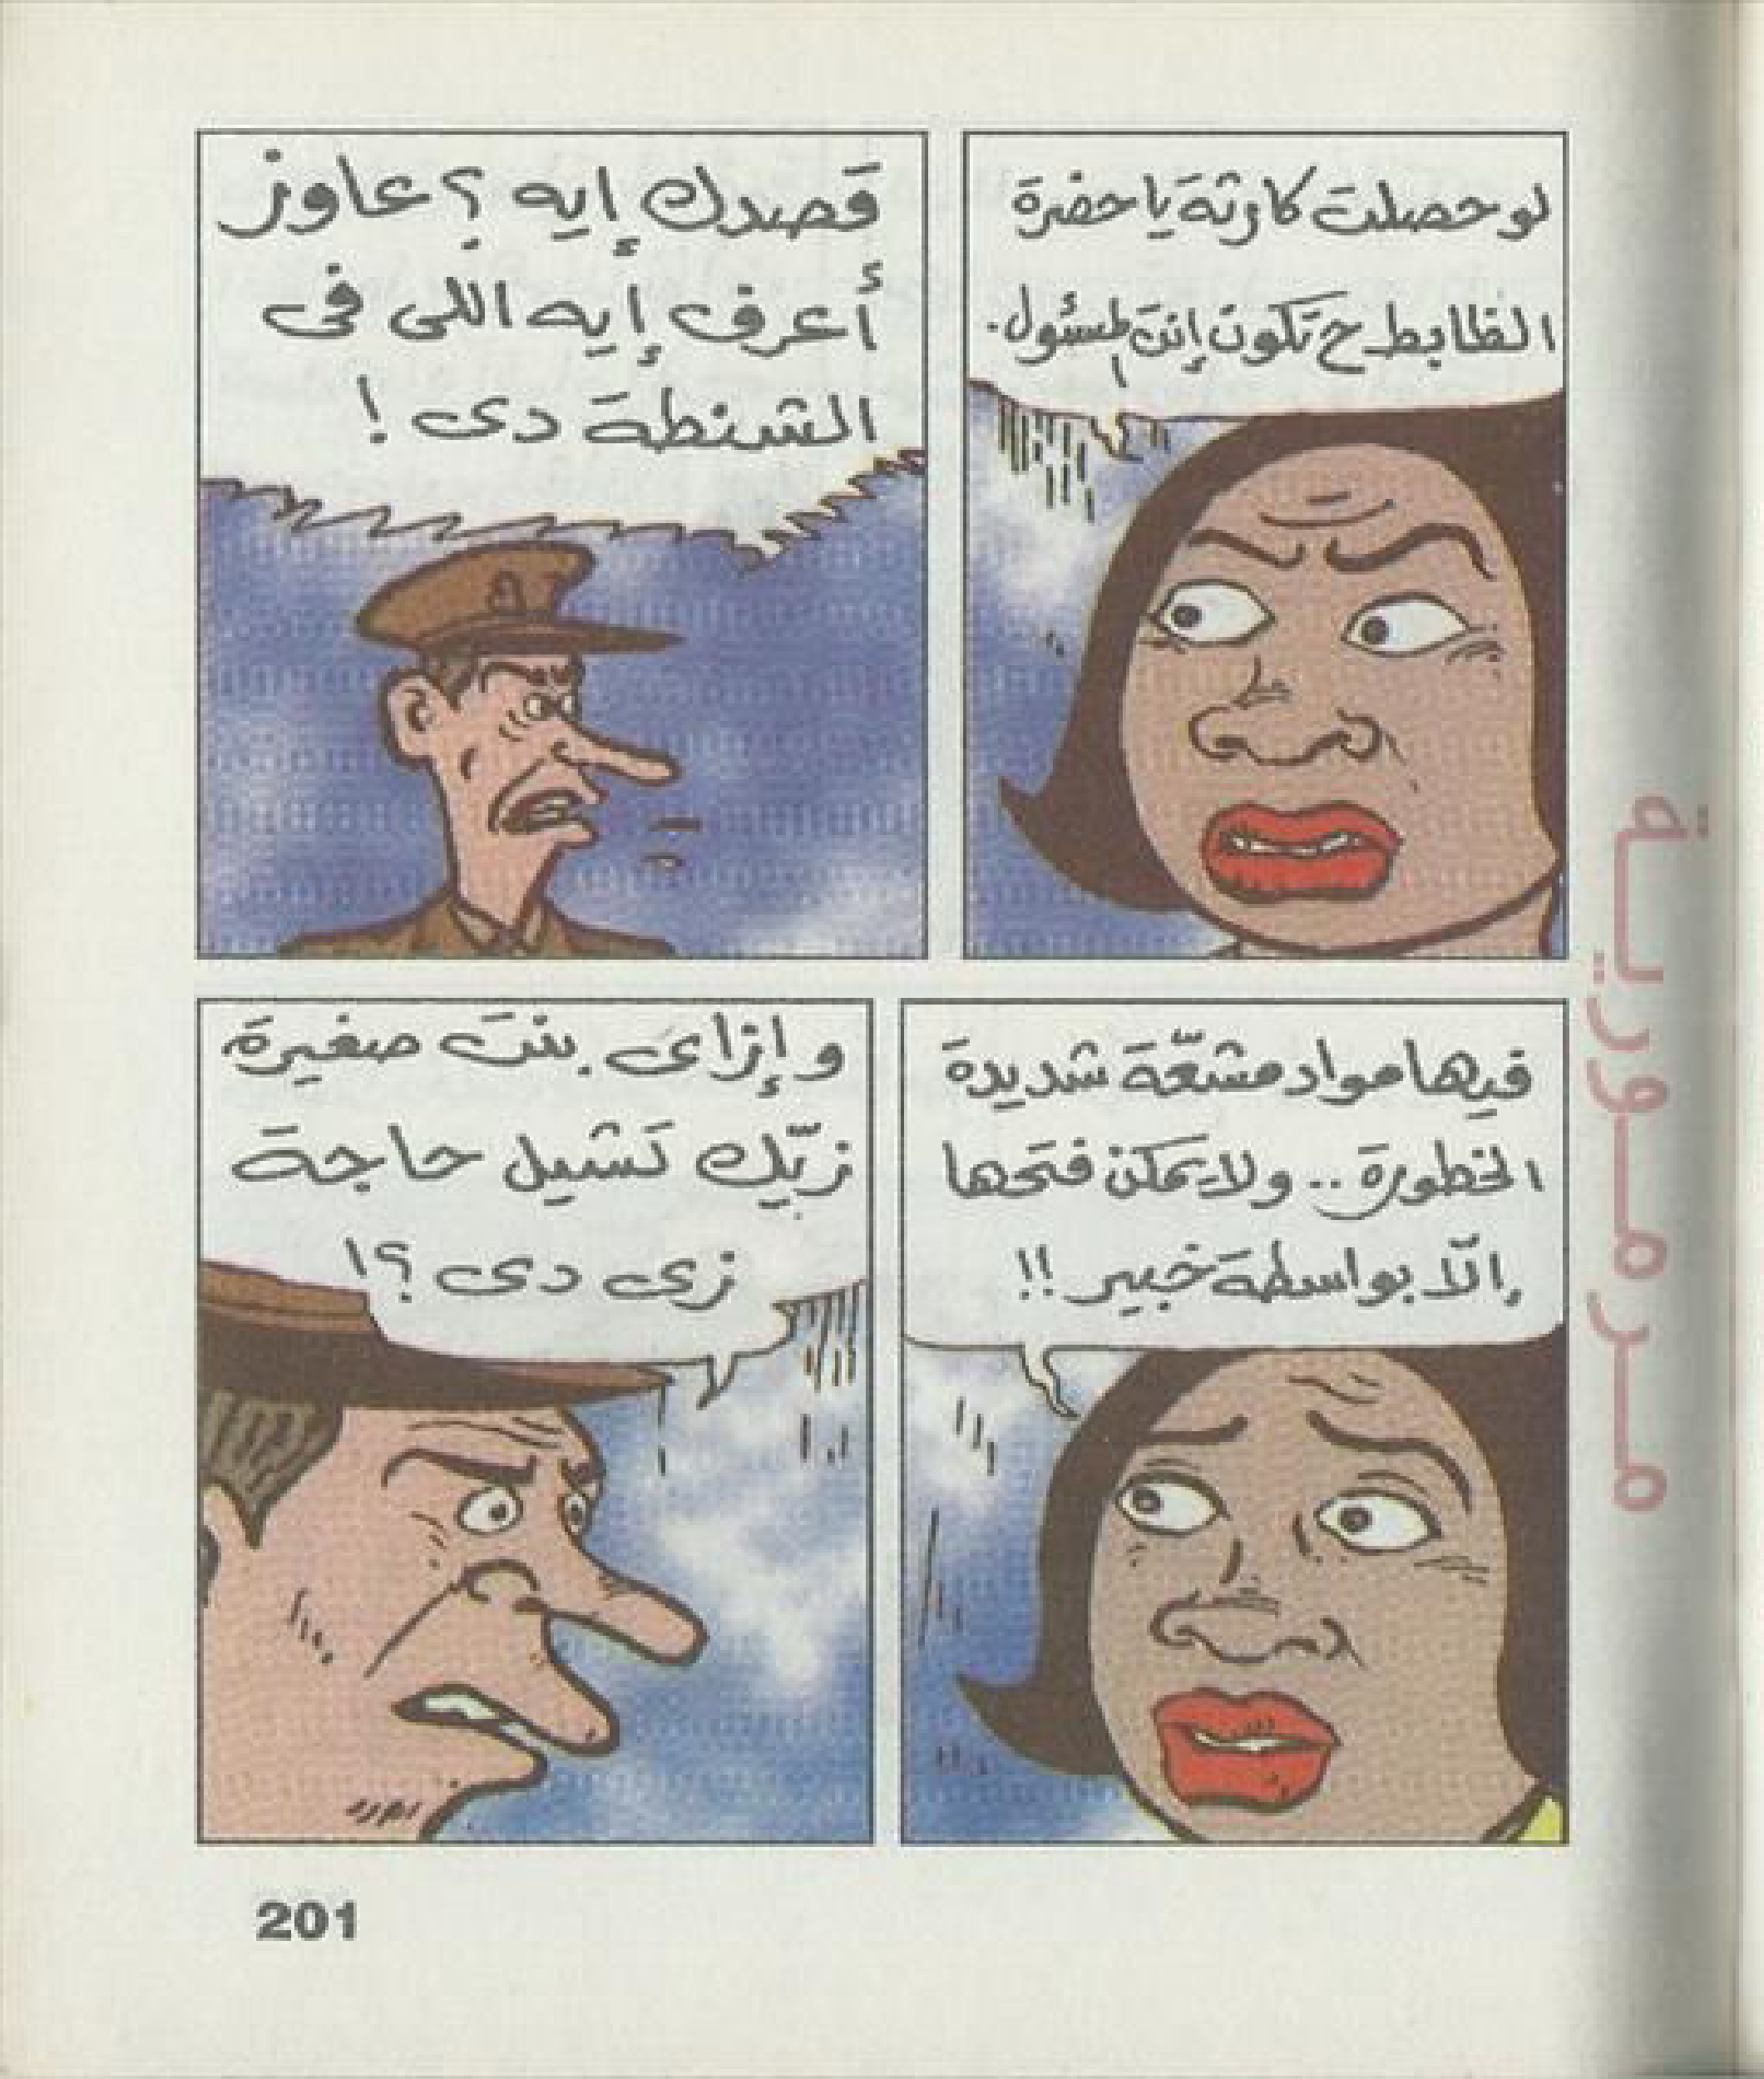 لو حصلت كارثة يا حضرة
الظابط ح تكون إنت المسئول.
قصدك إيه ؟ عاوز
أعرف إيه اللى فى
الشنطة دى !
فيها مواد مشعّة شديدة
الخطورة .. ولا يمكن فتحها
إلّا بواسطة خبير !!
وإزاى بنت صغيرة
زيّك تشيل حاجة
زى دى ؟!
201